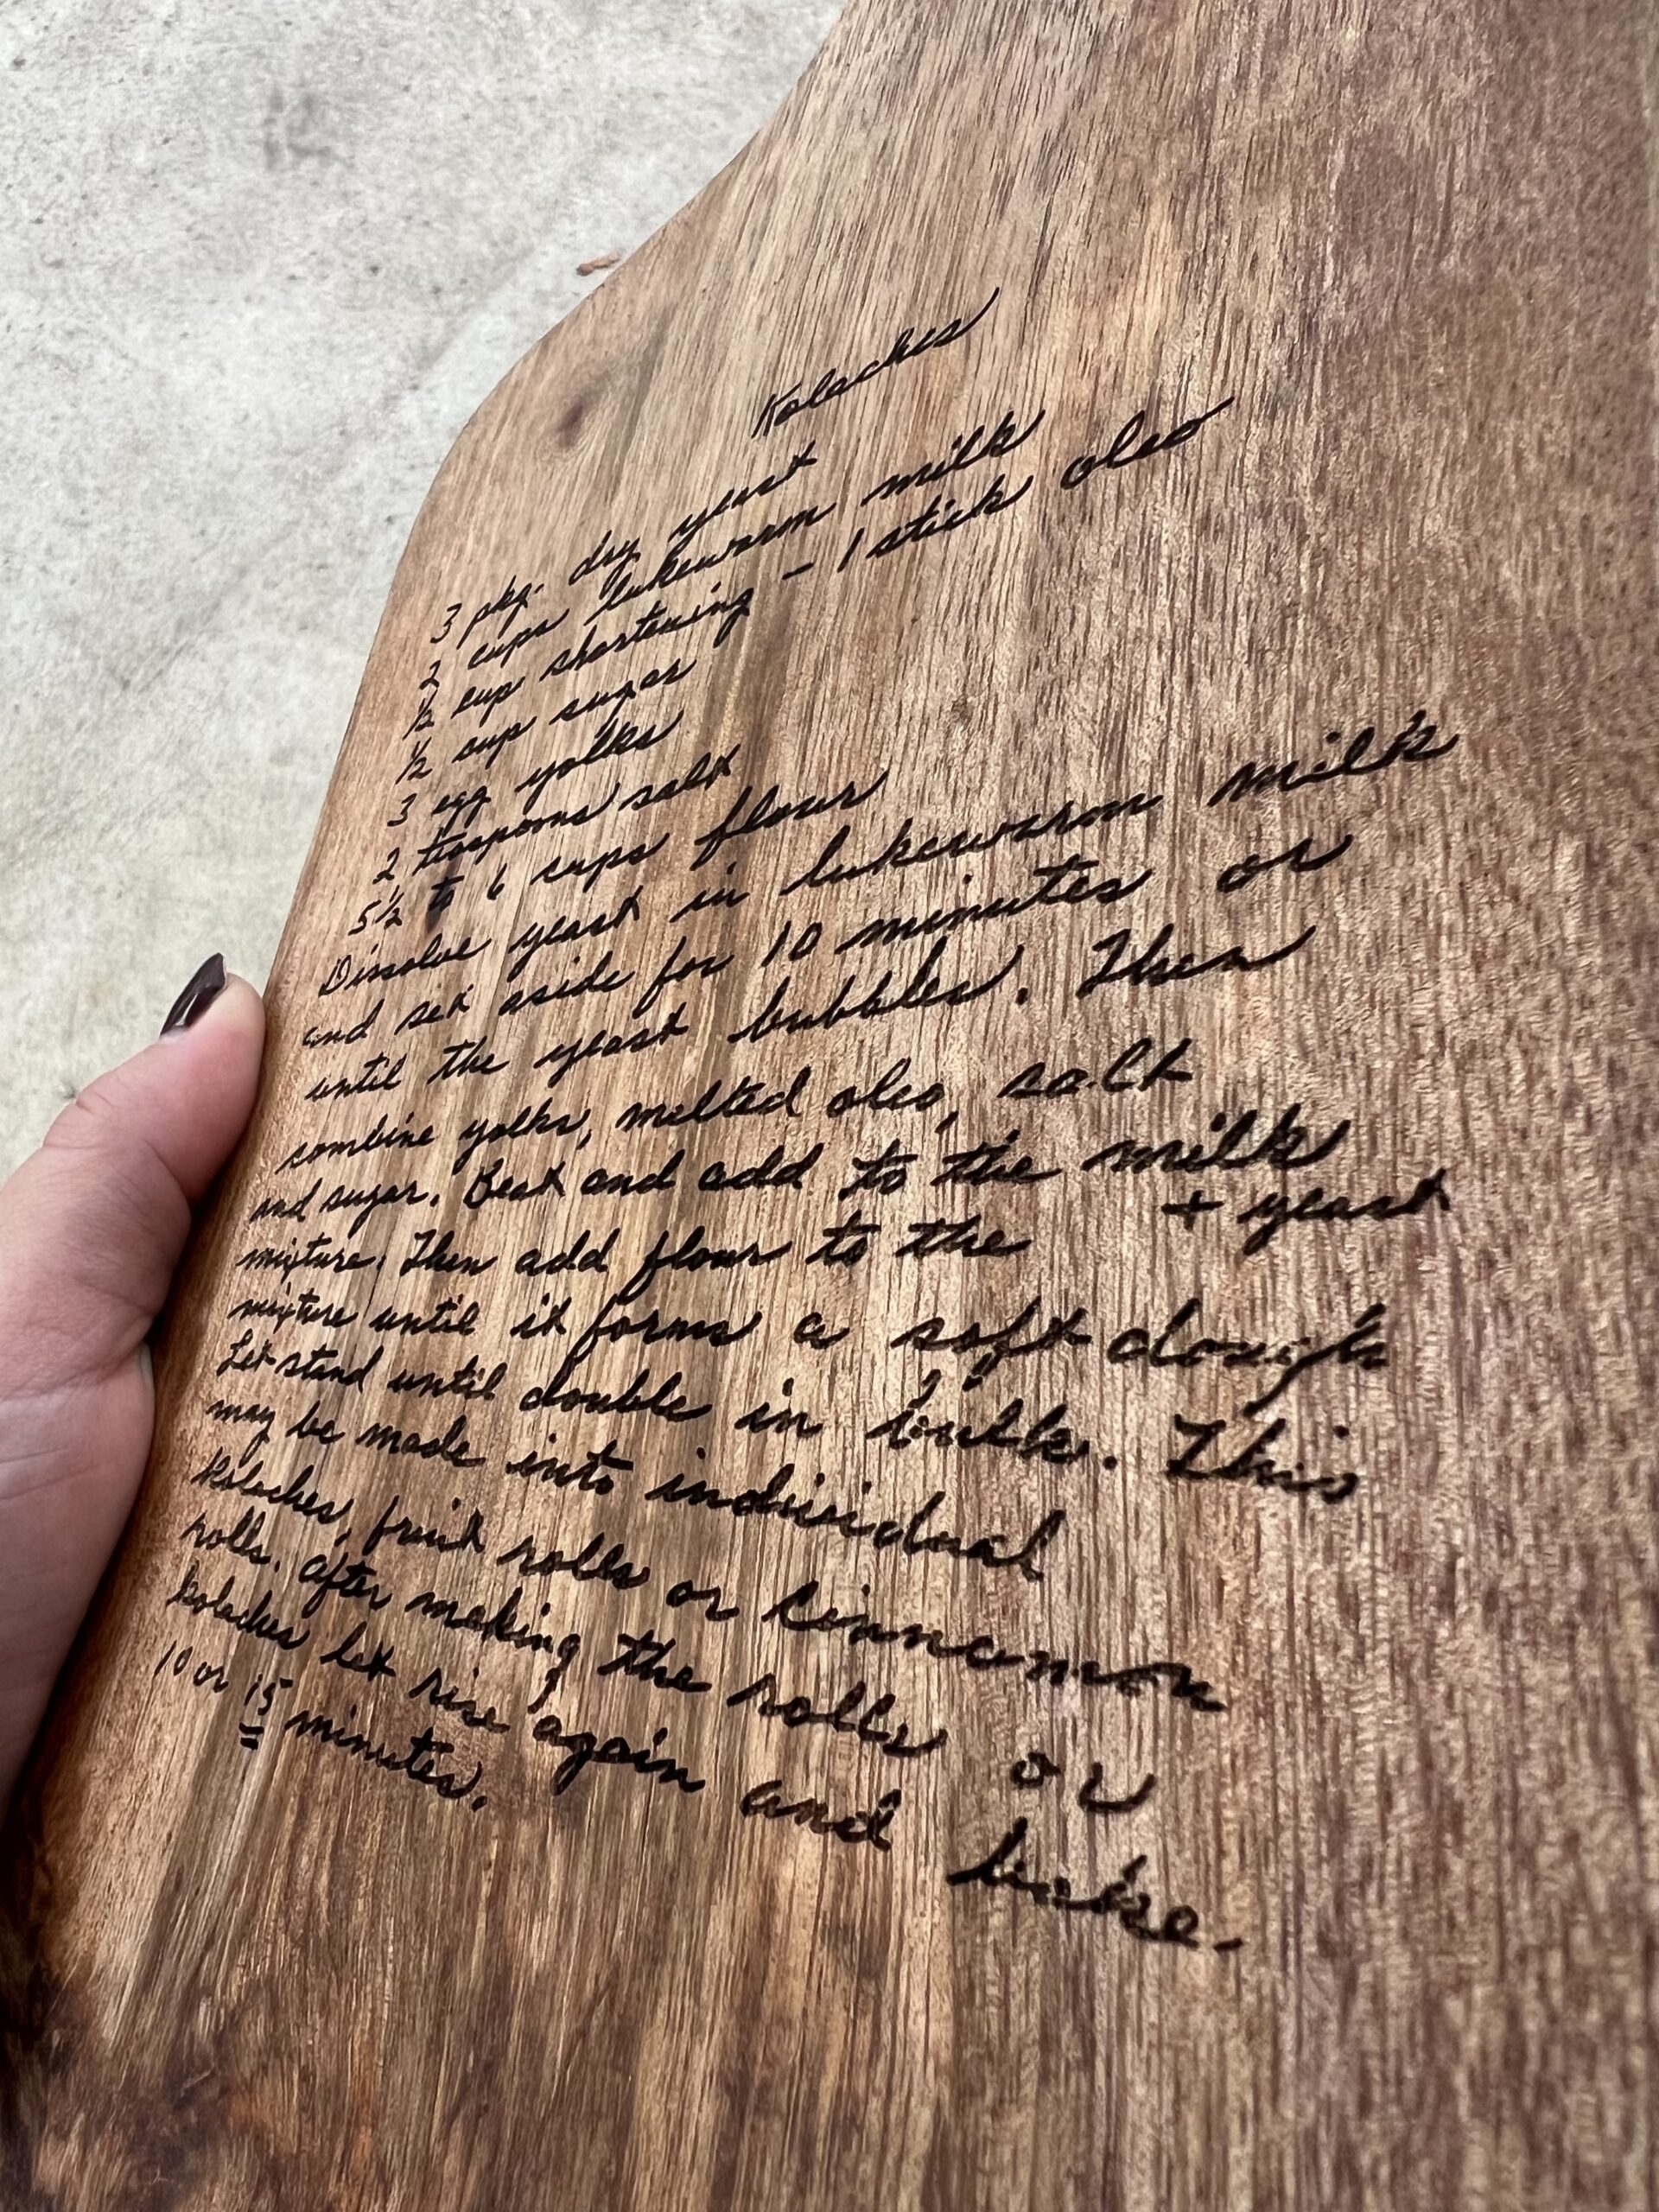 Kolaches
3 pkg. dry yeast
2 cups lukewarm milk
½ cup shortening - 1 stick oleo
½ cup sugar
3 egg yolks
2 teaspoons salt
5½ to 6 cups flour
Dissolve yeast in lukewarm milk
and set aside for 10 minutes or
until the yeast bubbles. Then
combine yolks, melted oleo, salt
and sugar. Beat and add to the milk
+ yeast
mixture. Then add flour to the
mixture until it forms a soft dough
Let stand until double in bulk. This
may be made into individual
Kolaches, fruit rolls or cinnamon
rolls. After making the rolls or
kolaches let rise again and bake.
10 or 15 minutes.